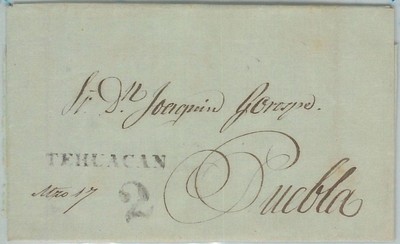 Sr. Dn. Joaquin Gorospe.
TEHUACAN
Mzo 17
2
Puebla